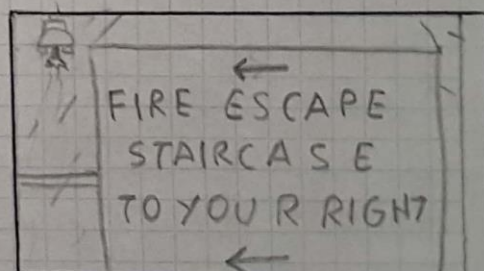 ←
FIRE ESCAPE
STAIRCASE
TO YOUR RIGHT
←